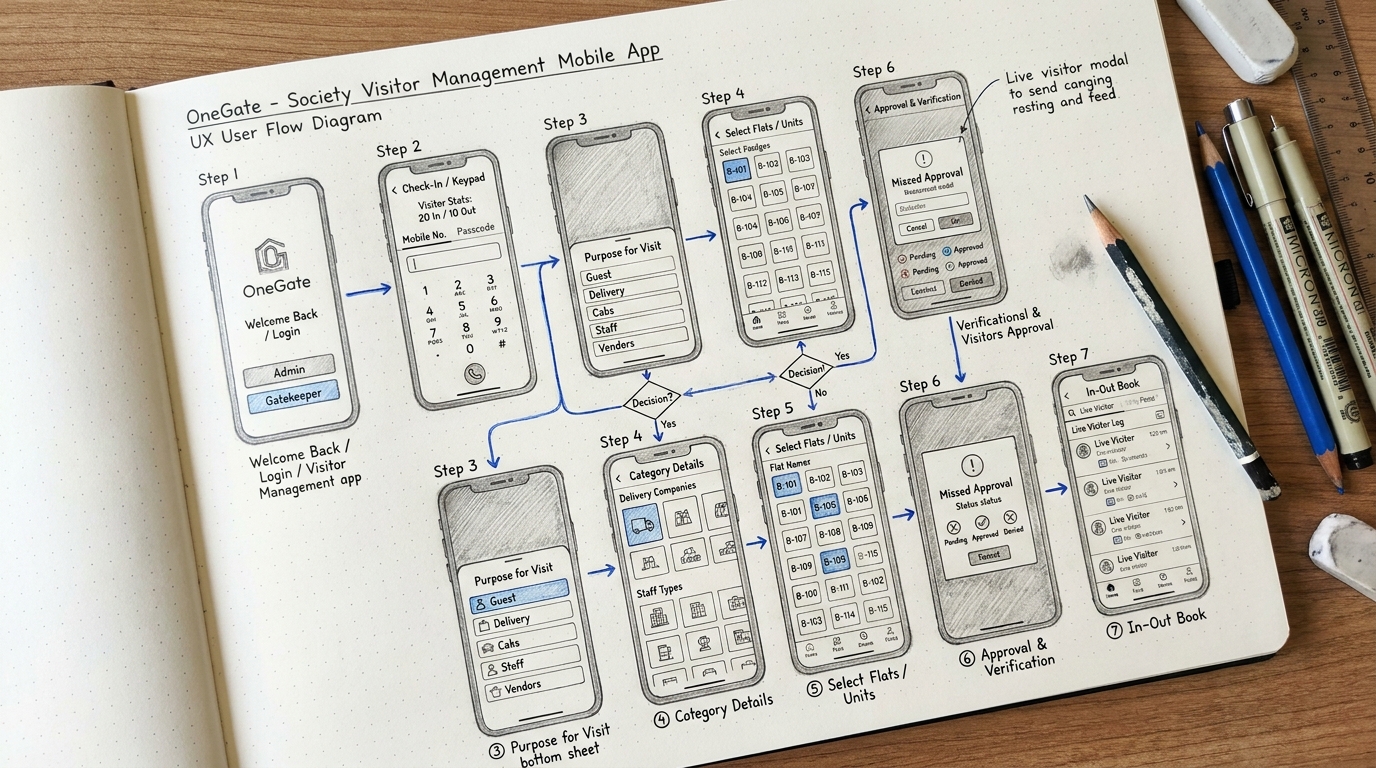 OneGate - Society Visitor Management Mobile App
UX User Flow Diagram
Step 1
OneGate
Welcome Back
/ Login
Admin
Gatekeeper
Welcome Back /
Login / Visitor
Management app
Step 2
Check-In / Keypad
Visitor Stats:
20 In / 10 Out
Mobile No. Passcode
1 2 3
ABC
4 5 6
7 8 9
0 #
Step 3
Purpose for Visit
Guest
Delivery
Cabs
Staff
Vendors
Decision?
Yes
Step 4
Select Flats / Units
Select
B-101 B-102 B-103
B-104 B-105 B-107
B-104 B-106 B-109
B-108 B-113
B-112 B-113 B-115
Decision!
Yes
No
Step 6
Approval & Verification
Missed Approval
Cancel
Pending Approved
Pending Approved
Denied
Live visitor modal
to send canging
rosting and feed.
Verificational &
Visitors Approval
Step 3
Purpose for Visit
Guest
Delivery
Cahs
Steff
Vendors
③ Purpose for Visit
bottom sheet
Step 4
Category Details
Delivery Companies
Staff Types
④ Category Details
Step 5
Select Flats / Units
Flat Hemer
B-101 B-102 B-103
B-101 B-105 B-106
B-107 B-108 B-109
B-109 B-109 B-115
B-100 B-111 B-102
B-103 B-114 B-115
⑤ Select Flats /
Units
Step 6
Missed Approval
Status status
Pending Approved Denied
⑥ Approval &
Verification
Step 7
In-Out Book
Live Visitor
Live Visiter Log
Live Visiter
Live Visitor
Live Visitor
Live Visiter
⑦ In-Out Book
MICRON
MICRON